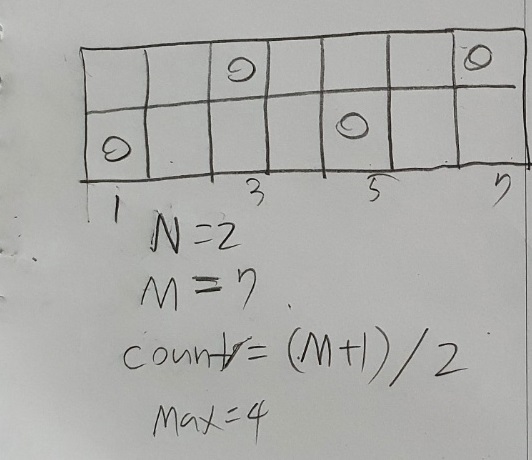 1 3 5 7
N=2
M=7
count=(M+1)/2
Max=4